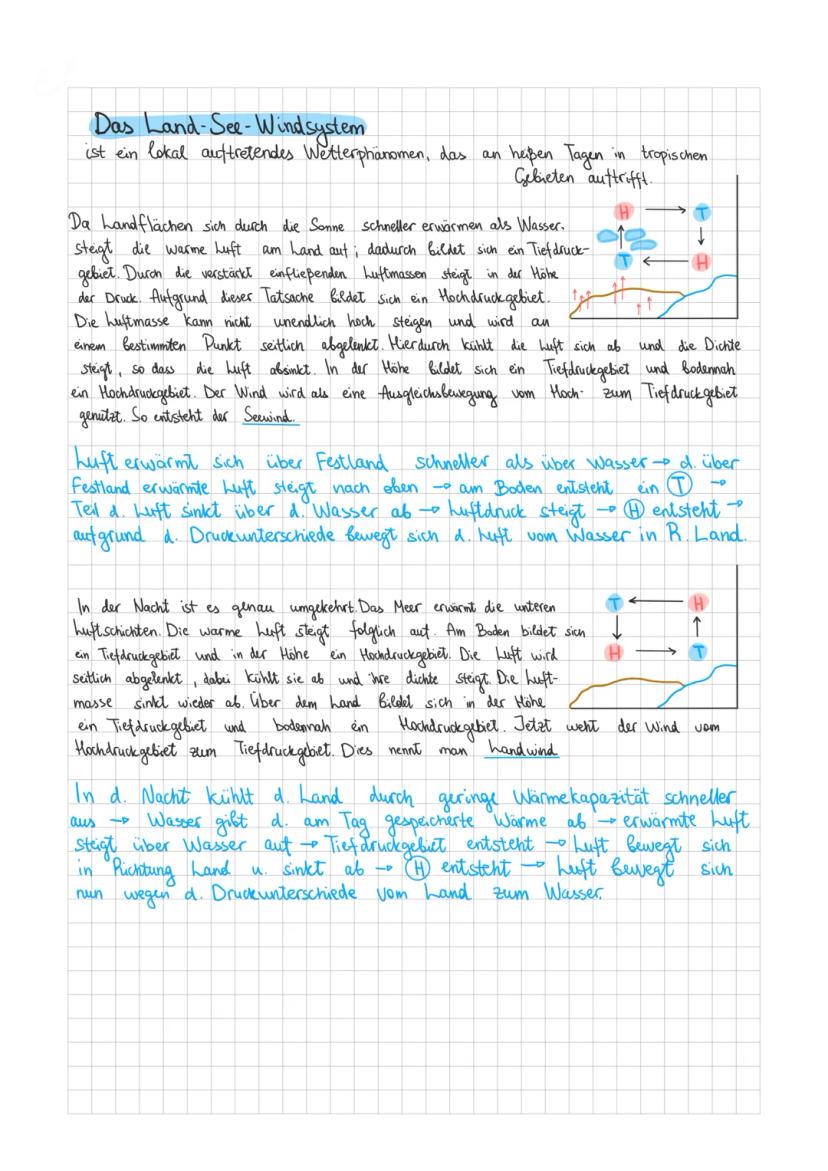 Das Land-See-Windsystem
ist ein lokal auftretendes Wetterphänomen, das an heißen Tagen in tropischen
Gebieten auftrifft.
H T
T H
Da Landflächen sich durch die Sonne schneller erwärmen als Wasser,
steigt die warme Luft am Land auf; dadurch bildet sich ein Tiefdruck-
gebiet. Durch die verstärkt einfließenden Luftmassen steigt in der Höhe
der Druck. Aufgrund dieser Tatsache bildet sich ein Hochdruckgebiet.
Die Luftmasse kann nicht unendlich hoch steigen und wird an
einem bestimmten Punkt seitlich abgelenkt. Hierdurch kühlt die Luft sich ab und die Dichte
steigt, so dass die Luft absinkt. In der Höhe bildet sich ein Tiefdruckgebiet und bodennah
ein Hochdruckgebiet. Der Wind wird als eine Ausgleichsbewegung vom Hoch- zum Tiefdruckgebiet
genutzt. So entsteht der Seewind.
Luft erwärmt sich über Festland schneller als über Wasser → d. über
Festland erwärmte Luft steigt nach oben → am Boden entsteht ein T →
Teil d. Luft sinkt über d. Wasser ab → Luftdruck steigt → H entsteht →
aufgrund d. Druckunterschiede bewegt sich d. Luft vom Wasser in R. Land.
T H
H T
In der Nacht ist es genau umgekehrt. Das Meer erwärmt die unteren
Luftschichten. Die warme Luft steigt folglich auf. Am Boden bildet sich
ein Tiefdruckgebiet und in der Höhe ein Hochdruckgebiet. Die Luft wird
seitlich abgelenkt, dabei kühlt sie ab und ihre dichte steigt. Die Luft-
masse sinkt wieder ab. Über dem Land bildet sich in der Höhe
ein Tiefdruckgebiet und bodennah ein Hochdruckgebiet. Jetzt weht der Wind vom
Hochdruckgebiet zum Tiefdruckgebiet. Dies nennt man Landwind
In d. Nacht kühlt d. Land durch geringe Wärmekapazität schneller
aus → Wasser gibt d. am Tag gespeicherte Wärme ab → erwärmte Luft
steigt über Wasser auf → Tiefdruckgebiet entsteht → Luft bewegt sich
in Richtung Land u. sinkt ab → H entsteht → Luft bewegt sich
nun wegen d. Druckunterschiede vom Land zum Wasser.